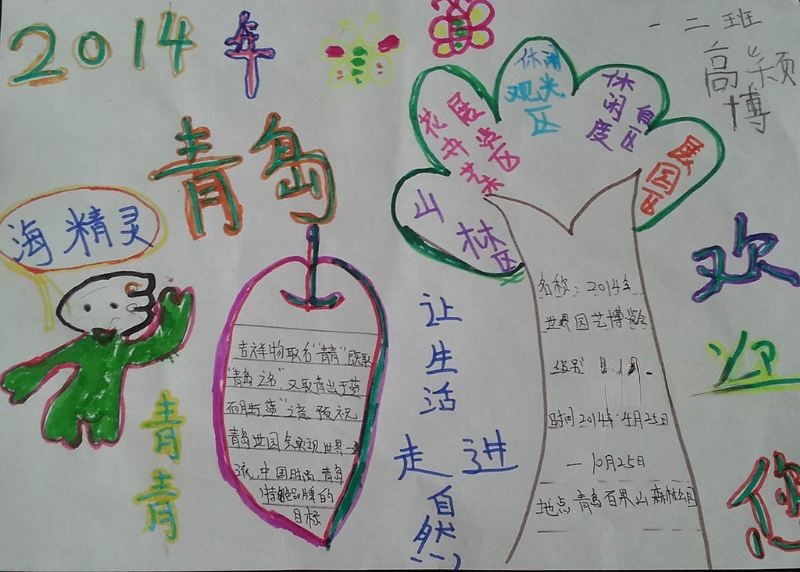 2014年
青岛
一二班
高颖博
海精灵
青青
吉祥物取名"青青"既取
"青岛之名",又取青出于蓝
而胜于蓝"之意,预祝
青岛世园会实现世界一
流,中国时尚,青岛
特色品牌的
目标
让生活
走进
自然
山林区
花卉
展览区
休闲
观光
区
休闲
自
度
区
展园区
名称:2014年
世界园艺博览会
级别
时间2014年4月25日
—10月25日
地点青岛百果山森林公园
欢迎您